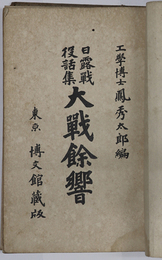 工學博士 鳳秀太郎編
日露戰
役話集
大戰餘響
東京 博文館藏版